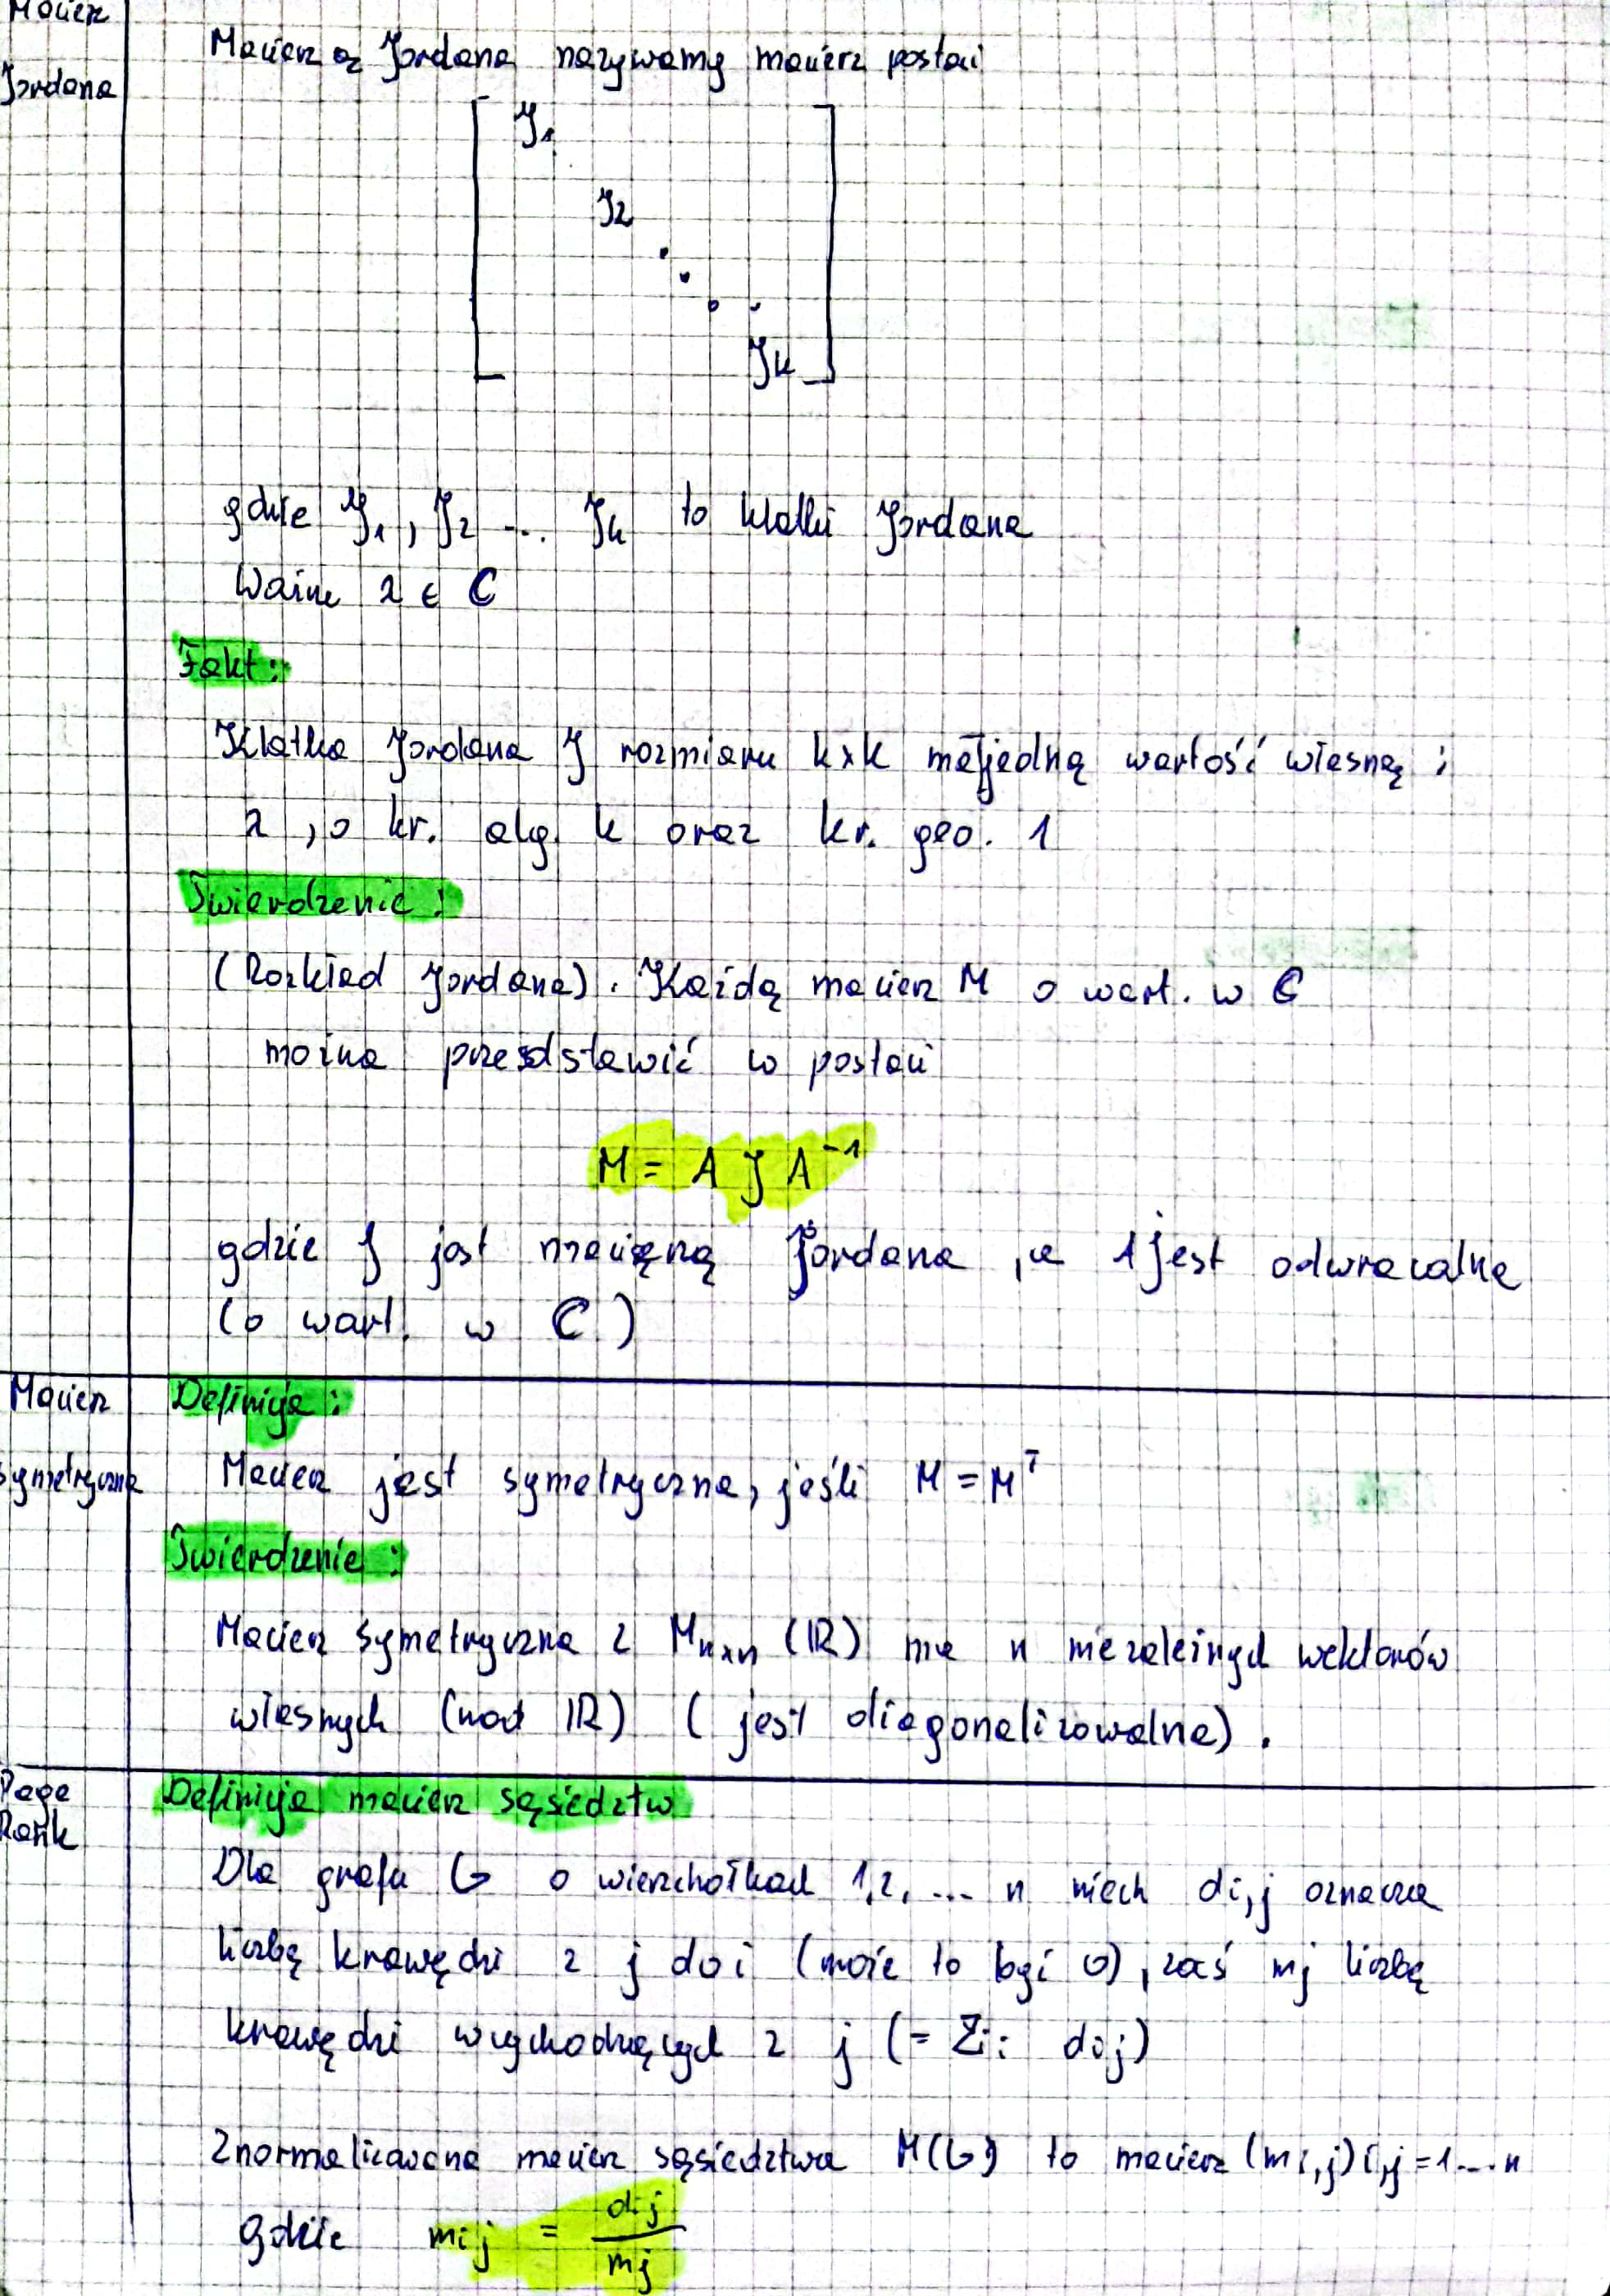 Macierz
Jordana
Macierzą Jordana nazywamy macierz postaci
J1
J2
Jk
gdzie J1, J2 ... Jk to klatki Jordana
Ważne λ ∈ C
Fakt:
Klatka Jordana J rozmiaru k×k ma jedną wartość własną:
λ, o kr. alg. k oraz kr. geo. 1
Twierdzenie:
(Rozkład Jordana). Każdą macierz M o wart. w C
można przedstawić w postaci
M = A J A⁻¹
gdzie J jest macierzą Jordana, a A jest odwracalna
(o wart. w C)
Macierz
symetryczna
Definicja:
Macierz jest symetryczna, jeśli M = Mᵀ
Twierdzenie:
Macierz symetryczna z Mn×n (ℝ) ma n niezależnych wektorów
własnych (nad ℝ) (jest diagonalizowalna).
Page
Rank
Definicja macierz sąsiedztw
Dla grafu G o wierzchołkach 1,2, ... n niech di,j oznacza
liczbę krawędzi z j do i (może to być 0), zaś mj liczbę
krawędzi wychodzących z j (= Σi: dij)
Znormalizowana macierz sąsiedztwa M(G) to macierz (mi,j)i,j=1...n
gdzie mij = dij / mj